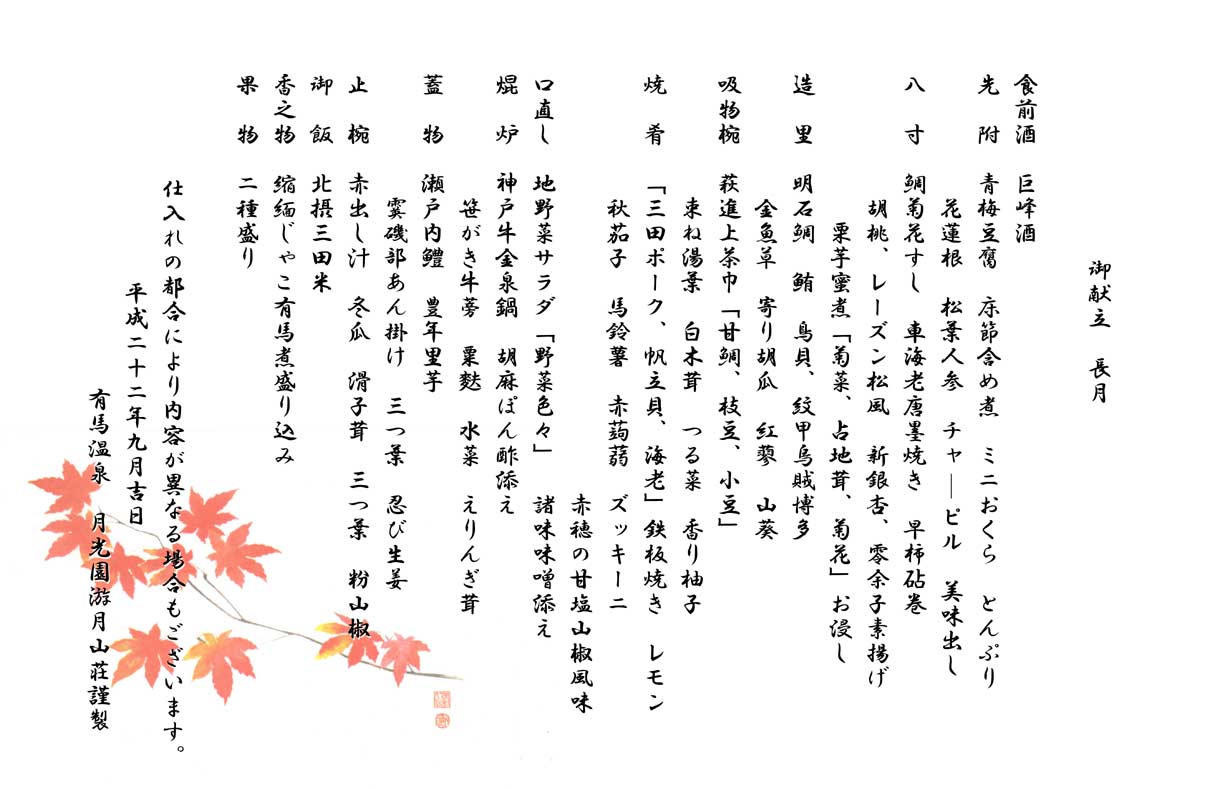 御献立　長月
食前酒　巨峰酒
先　附　青梅豆腐　床節含め煮　ミニおくら　とんぷり
花蓮根　松葉人参　チャービル　美味出し
八　寸　鯛菊花すし　車海老唐墨焼き　早柿砧巻
胡桃、レーズン松風　新銀杏、零余子素揚げ
栗芋蜜煮「菊菜、占地茸、菊花」お浸し
造　里　明石鯛　鮪　鳥貝、紋甲烏賊博多
金魚草　寄り胡瓜　紅蓼　山葵
吸物椀　萩進上茶巾「甘鯛、枝豆、小豆」
束ね湯葉　白木茸　つる菜　香り柚子
焼　肴　「三田ポーク、帆立貝、海老」鉄板焼き　レモン
秋茄子　馬鈴薯　赤蒟蒻　ズッキーニ
赤穂の甘塩山椒風味
口直し　地野菜サラダ「野菜色々」　諸味味噌添え
焜　炉　神戸牛金泉鍋　胡麻ぽん酢添え
笹がき牛蒡　粟麩　水菜　えりんぎ茸
蓋　物　瀬戸内鱧　豊年里芋
霙磯部あん掛け　三つ葉　忍び生姜
止　椀　赤出し汁　冬瓜　滑子茸　三つ葉　粉山椒
御　飯　北摂三田米
香之物　縮緬じゃこ有馬煮盛り込み
果　物　二種盛り
仕入れの都合により内容が異なる場合もございます。
平成二十二年九月吉日
有馬温泉　月光園游月山荘謹製